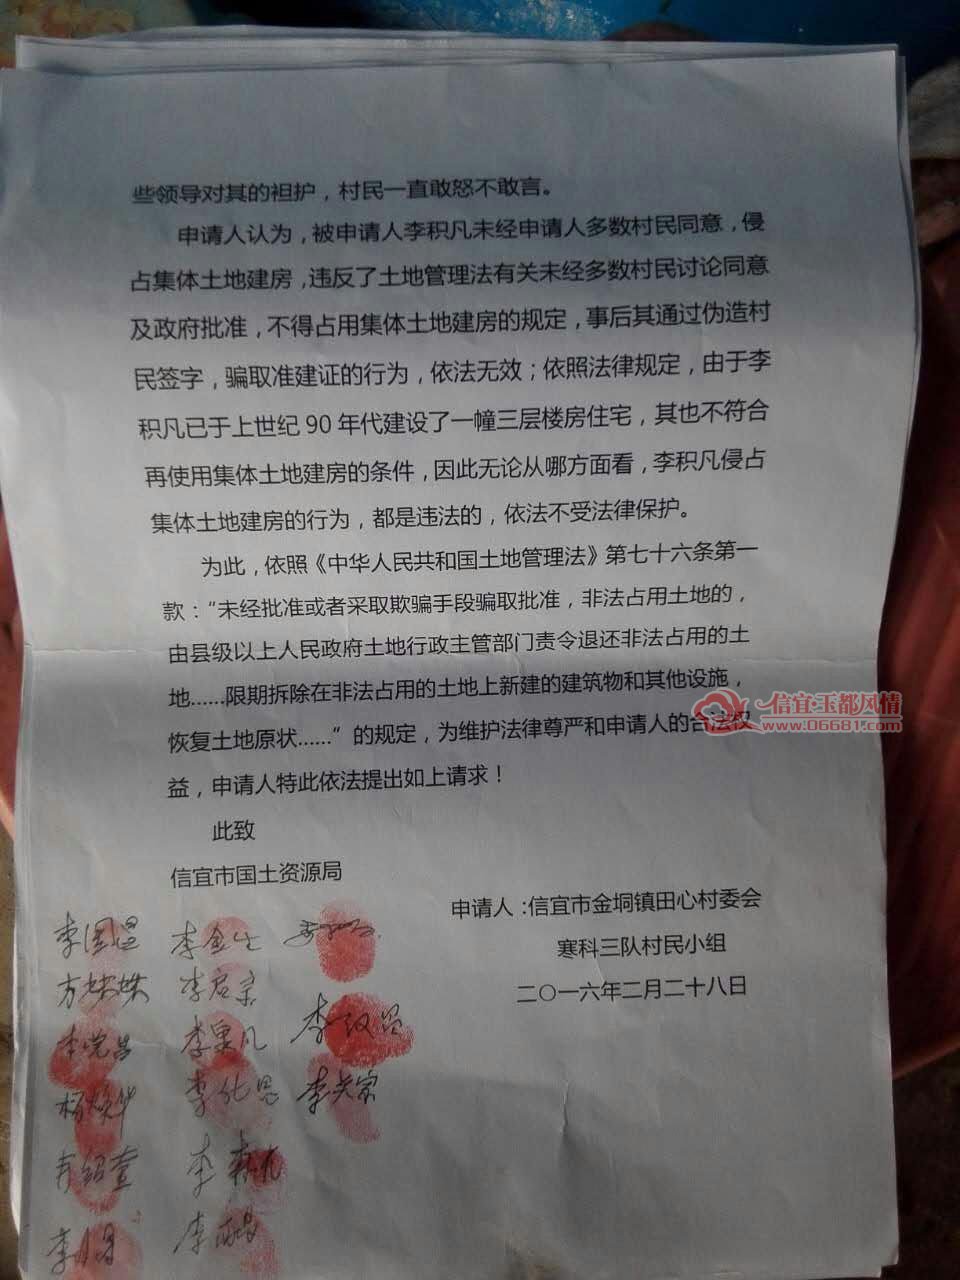 些领导对其的袒护，村民一直敢怒不敢言。
申请人认为，被申请人李积凡未经申请人多数村民同意，侵
占集体土地建房，违反了土地管理法有关未经多数村民讨论同意
及政府批准，不得占用集体土地建房的规定，事后其通过伪造村
民签字，骗取准建证的行为，依法无效；依照法律规定，由于李
积凡已于上世纪90年代建设了一幢三层楼房住宅，其也不符合
再使用集体土地建房的条件，因此无论从哪方面看，李积凡侵占
集体土地建房的行为，都是违法的，依法不受法律保护。
为此，依照《中华人民共和国土地管理法》第七十六条第一
款：“未经批准或者采取欺骗手段骗取批准，非法占用土地的，
由县级以上人民政府土地行政主管部门责令退还非法占用的土
地……限期拆除在非法占用的土地上新建的建筑物和其他设施，
恢复土地原状……”的规定，为维护法律尊严和申请人的合法权
益，申请人特此依法提出如上请求！
信宜·玉都风情
www.06681.com
此致
信宜市国土资源局
申请人：信宜市金垌镇田心村委会
寒科三队村民小组
二〇一六年二月二十八日
李金生
李启宗
杨焕华